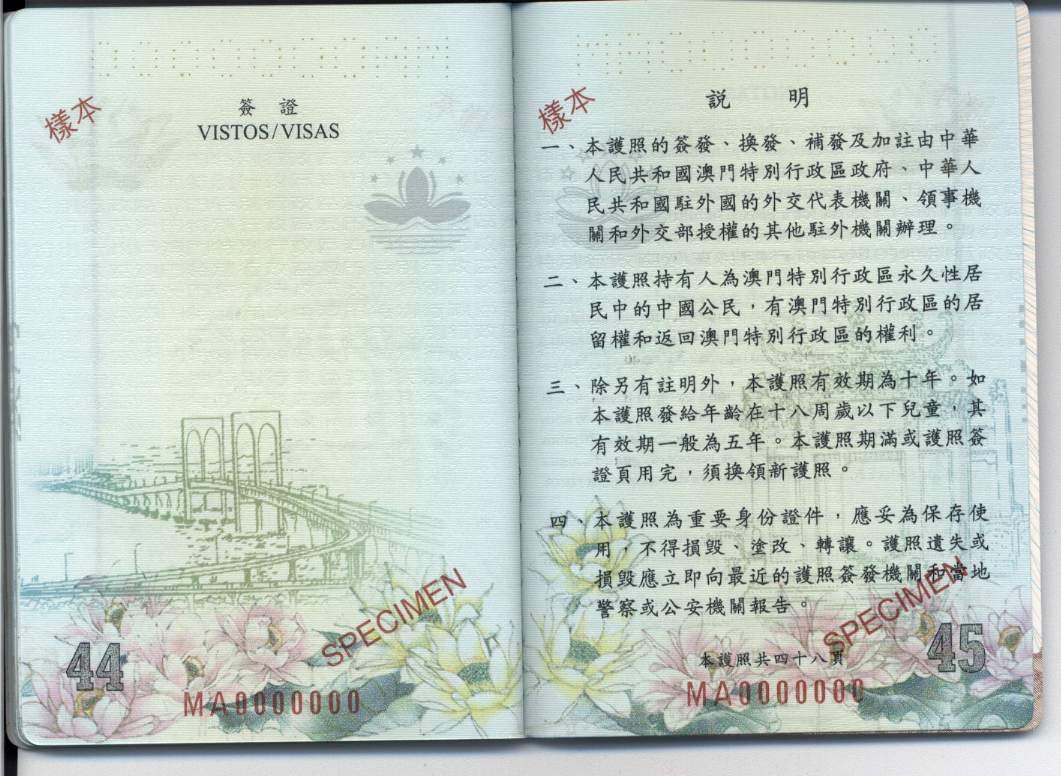 樣本
簽 證
VISTOS/VISAS
SPECIMEN
44
MA0000000
樣本
説 明
一、本護照的簽發、換發、補發及加註由中華
人民共和國澳門特別行政區政府、中華人
民共和國駐外國的外交代表機關、領事機
關和外交部授權的其他駐外機關辦理。
二、本護照持有人為澳門特別行政區永久性居
民中的中國公民，有澳門特別行政區的居
留權和返回澳門特別行政區的權利。
三、除另有註明外，本護照有效期為十年。如
本護照發給年齡在十八周歲以下兒童，其
有效期一般為五年。本護照期滿或護照簽
證頁用完，須換領新護照。
四、本護照為重要身份證件，應妥為保存使
用，不得損毀、塗改、轉讓。護照遺失或
損毀應立即向最近的護照簽發機關和當地
警察或公安機關報告。
SPECIMEN
本護照共四十八頁
45
MA0000000